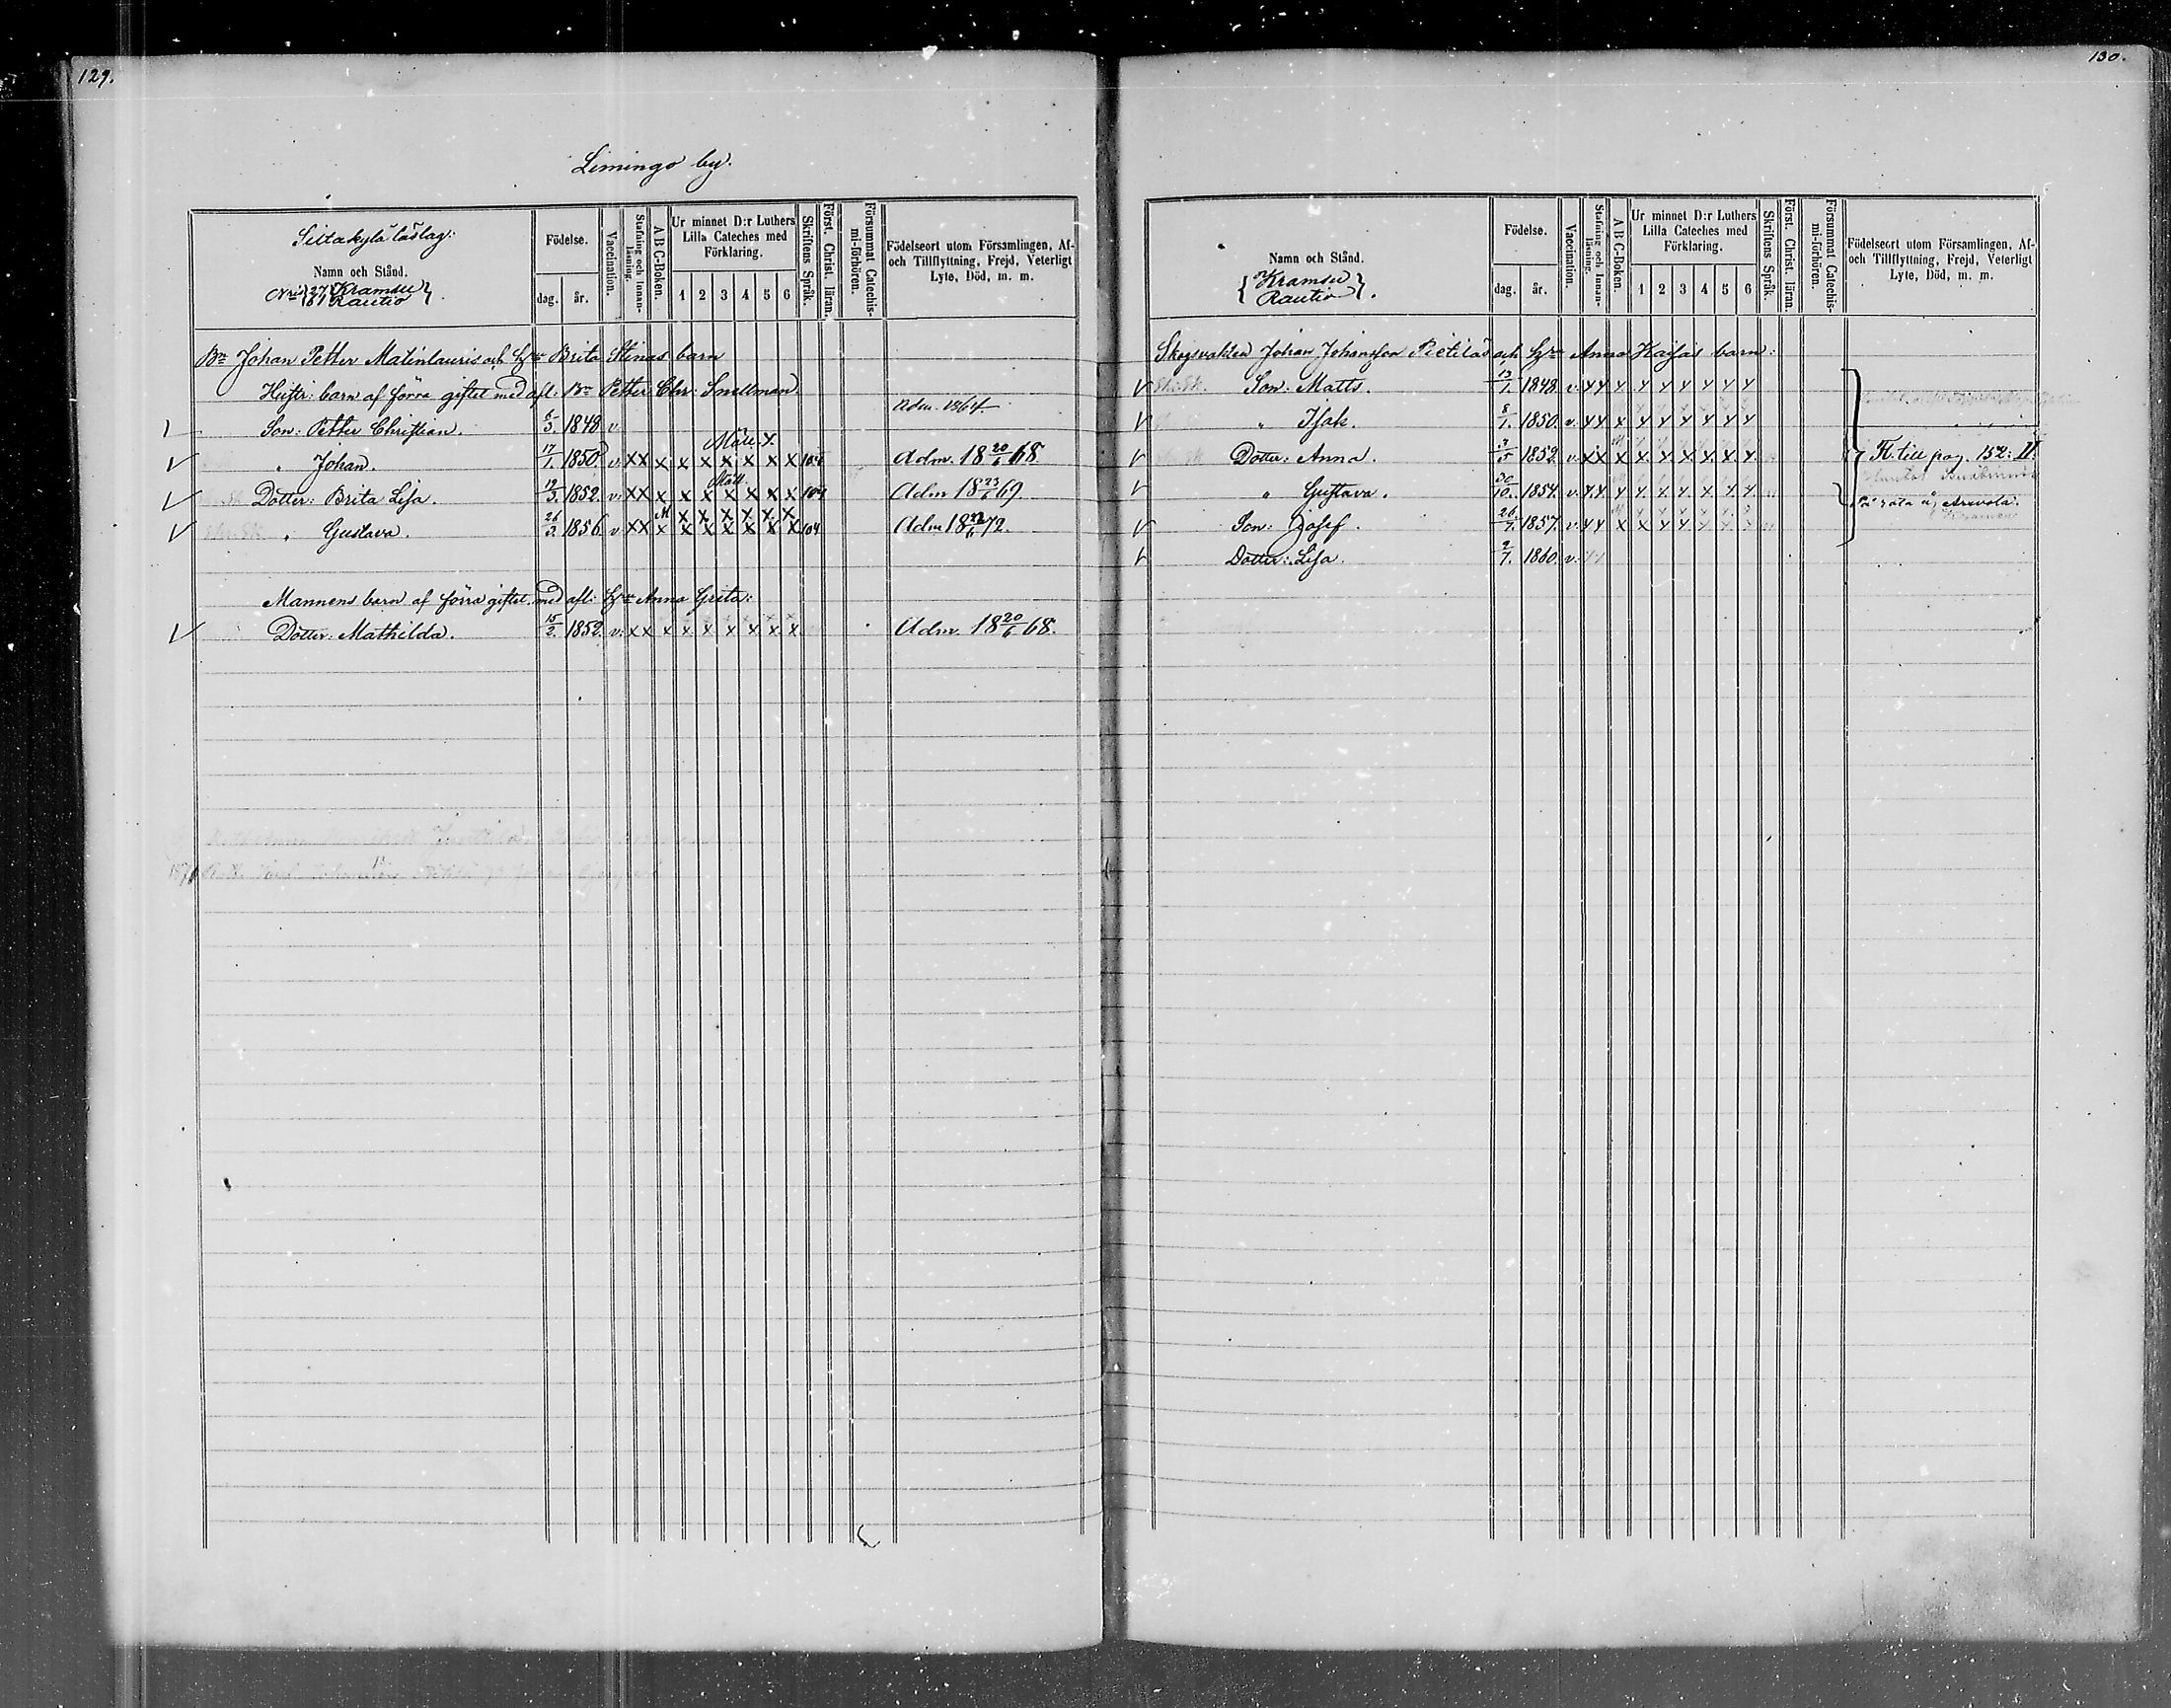 129.
Limingo by.
Siltakylä läslag:
Namn och Stånd.
Kramsu
Rautio
Födelse.
dag. år.
Vaccination.
Stafning och Innanläsning.
A B C-Boken.
Ur minnet D:r Luthers Lilla Cateches med Förklaring.
1 2 3 4 5 6
Skriftens Språk.
Först. Christ. läran.
Försummat Catechismi-förhören.
Födelseort utom Församlingen, Af- och Tillflyttning, Frejd, Veterligt Lyte, Död, m. m.
Bn Johan Petter Matinlauris och Hu Brita Stinas barn
Hustr: barn af förra giftet med afl. Bn Petter Chr: Snellman.
Son: Petter Christian. 6/3. 1848 v Adm. 1864
" Johan. 17/1. 1850. v. X X X X X X X X X 104 Adm. 18 20/6 68
Dotter: Brita Lisa. 19/3. 1852. v. X X X X X X X X X 104 Adm 18 23/6 69
" Gustava. 26/3. 1856 v X X X X X X X X X 104 Adm 18 22/6 72.
Mannens barn af förra giftet med afl: Hu Anna Greta:
Dotter: Mathilda. 15/2. 1852. v. X X X X X X X X X Adm. 18 20/6 68.
130.
Namn och Stånd.
{ Kramsu
Rautio }.
Födelse.
dag. år.
Vaccination.
Stafning och Innanläsning.
A B C-Boken.
Ur minnet D:r Luthers Lilla Cateches med Förklaring.
1 2 3 4 5 6
Skriftens Språk.
Först. Christ. läran.
Försummat Catechismi-förhören.
Födelseort utom Församlingen, Af- och Tillflyttning, Frejd, Veterligt Lyte, Död, m. m.
Skogsvakten Johan Johansson Pietiläs och Hu Anna Kaisas barn:
Son: Matts. 13/1. 1848. v. X X X X X X X X X
" Isak. 8/1. 1850. v. X X X X X X X X X
Dotter: Anna. 1852. v. X X X X X X X X X Fl. till pag. 152: II.
" Gustava. 30/10. 1854. v. X X X X X X X X X
Son: Josef. 26/7. 1857. v. X X X X X X X X X
Dotter: Lisa. 9/7. 1860. v.